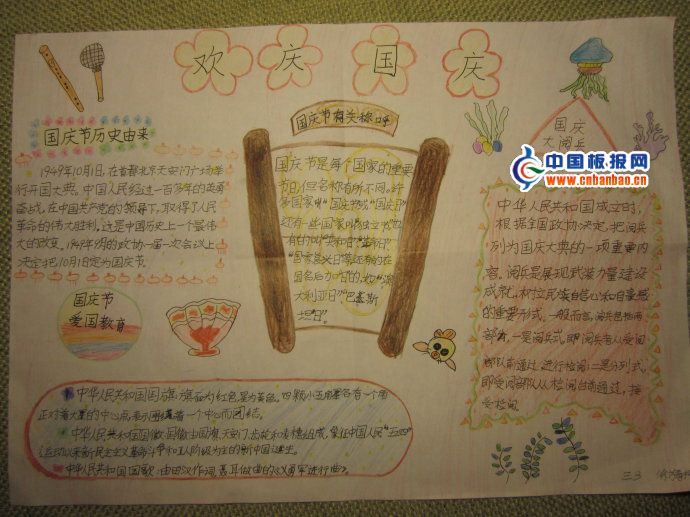 欢庆国庆
国庆节历史由来
1949年10月1日,在首都北京天安门广场举
行开国大典。中国人民经过一百多年的英勇
奋战,在中国共产党的领导下,取得了人民
革命的伟大胜利,这是中国历史上一个最伟
大的改变。1949年9月的政协一届一次会议上
决定把10月1日定为国庆节。
国庆节有关称呼
国庆节是每个国家的重要
节日,但名称有所不同。许
多国家叫"国庆节"或"国庆日"
还有一些国家叫"独立日"也
有的叫"共和日""革命日"
"国家复兴日"等还有的在
国名后加"日"的,如"澳
大利亚日""巴基斯
坦日"。
国庆
大阅兵
中国板报网
www.cnbanbao.cn
中华人民共和国成立时,
根据全国政协决定,把阅兵
列为国庆大典的一项重要内
容。阅兵是展现武装力量建设
成就,树立民族自信心和自豪感
的重要形式,一般而言,阅兵包括两
部者,一是阅兵式,即阅兵者从受阅
部队前通过,进行检阅;二是分列式,
即受阅部队从检阅台前通过,接
受检阅
国庆节
爱国教育
中华人民共和国国旗:旗面为红色,星为黄色。四颗小五角星各有一个角
正对着大星的中心点,表示围绕着一个中心而团结。
中华人民共和国国徽:国徽由国旗、天安门、齿轮和麦穗组成,象征中国人民"五四"
运动以来新民主主义革命斗争和工人阶级为主的新中国诞生。
中华人民共和国国歌:由田汉作词、聂耳做曲的《义勇军进行曲》。
三3